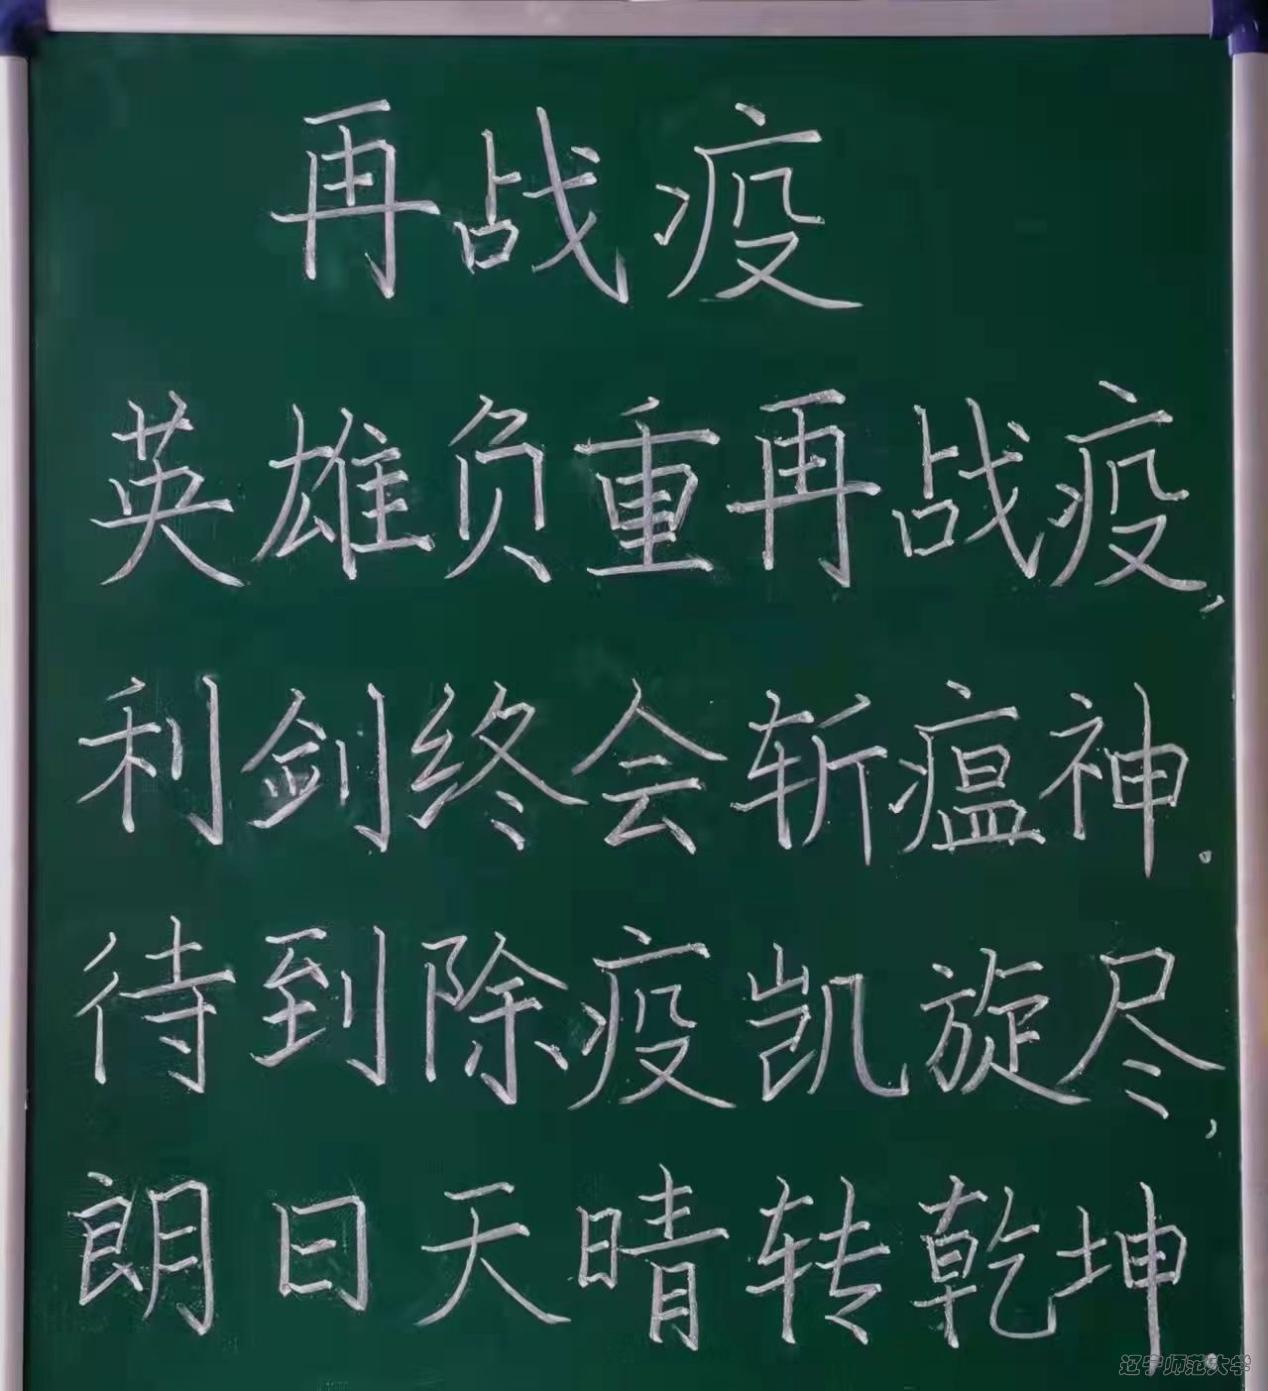 再战疫
英雄负重再战疫,
利剑终会斩瘟神.
待到除疫凯旋尽,
朗日天晴转乾坤.
辽宁师范大学